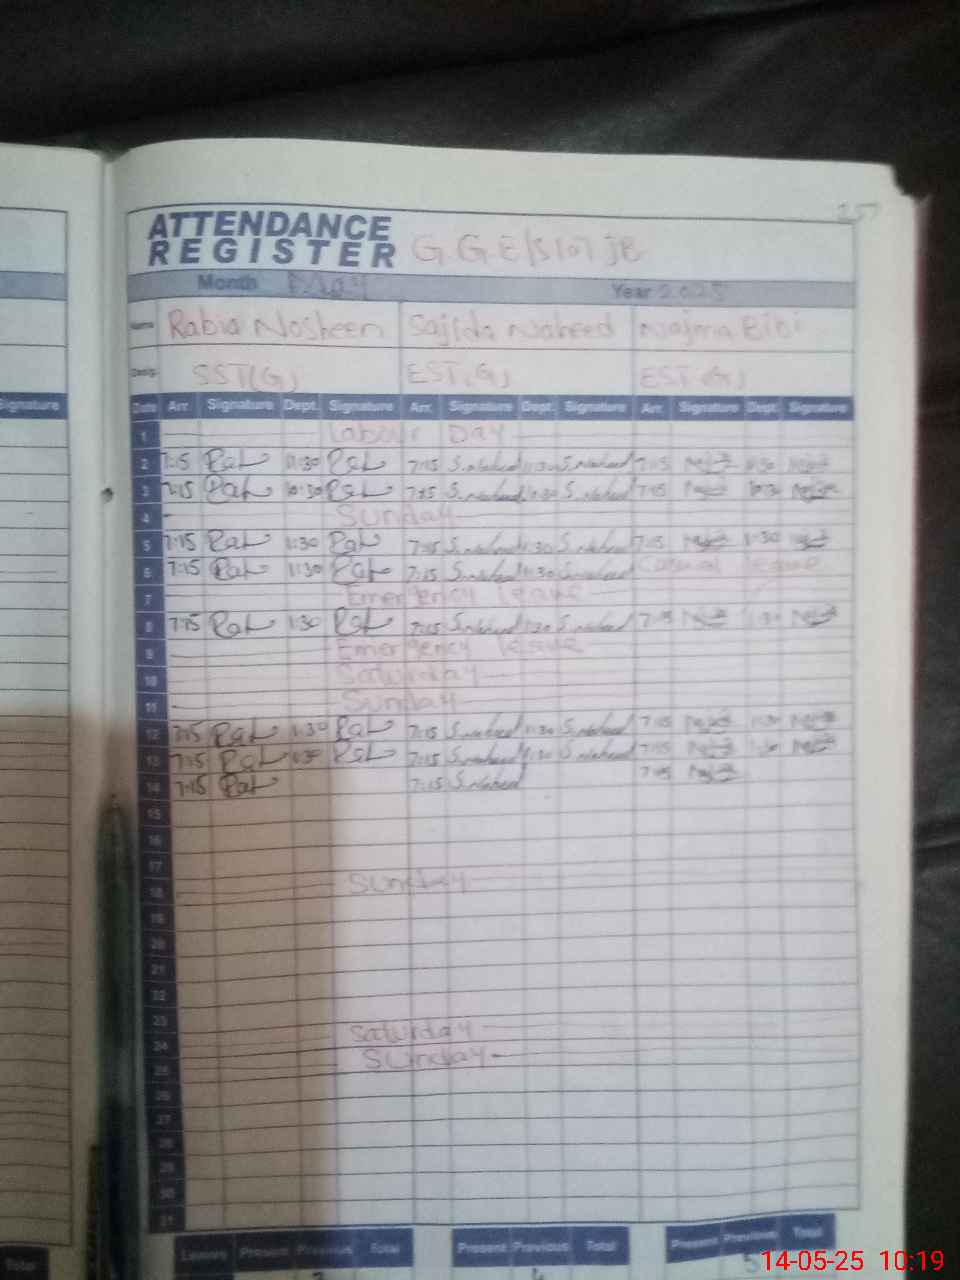 257
ATTENDANCE
REGISTER G.G.E/S 107 JB
Month May Year 2025
Name Rabia Nosheen Sajida Naheed Najma Bibi
Desig. SST(G) EST(G) EST(G)
Signature Date Arr. Signature Dept. Signature Arr. Signature Dept. Signature Arr. Signature Dept. Signature
1 Labour Day
2 7:15 11:30 7:15 S.naheed 11:30 S.naheed 7:15 11:30
3 7:15 10:30 7:15 S.naheed 10:30 S.naheed 7:15 10:30
4 Sunday
5 7:15 11:30 7:15 S.naheed 11:30 S.naheed 7:15 11:30
6 7:15 11:30 7:15 S.naheed 11:30 S.naheed Casual leave
7 Emergency leave
8 7:15 1:30 7:15 S.naheed 1:30 S.naheed 7:15 1:30
9 Emergency leave
10 Saturday
11 Sunday
12 7:15 1:30 7:15 S.naheed 11:30 S.naheed 7:15 11:30
13 7:15 7:15 S.naheed 1:30 S.naheed 7:15 1:30
14 7:15 7:15 S.naheed 7:15
15
16
17
18 Sunday
19
20
21
22
23
24 Saturday
25 Sunday
26
27
28
29
30
31
Total Leaves Present Previous Total Present Previous Total Present Previous Total
14-05-25 10:19